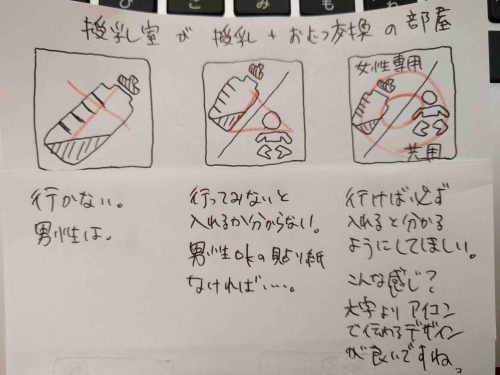 授乳室が授乳+おむつ交換の部屋
行かない。
男性は。
行ってみないと
入れるか分からない。
男性okの貼り紙
なければ…。
女性専用
共用
行けば必ず
入れると分かる
ようにしてほしい。
こんな感じ?
文字よりアイコン
で伝わるデザイン
が良いですね。